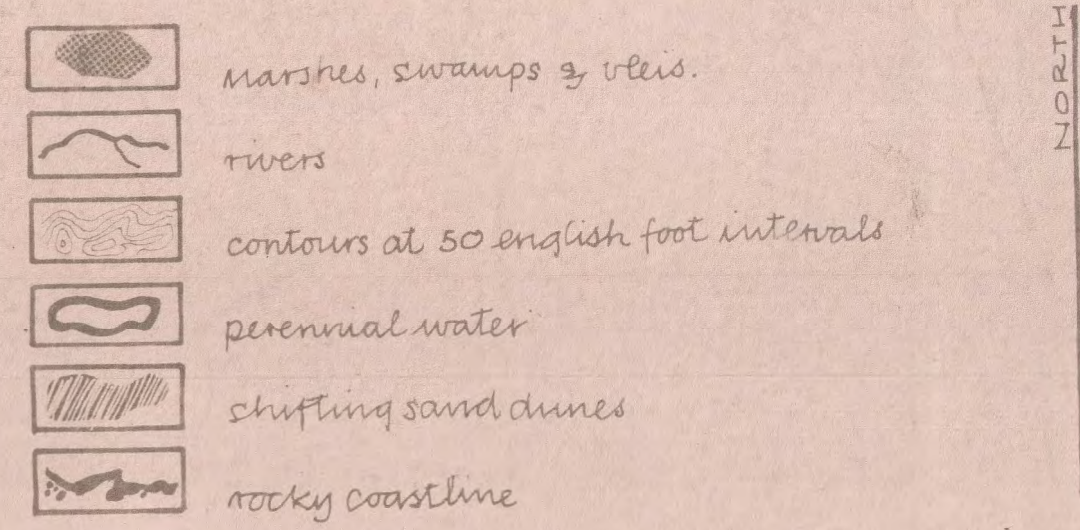 Marshes, swamps & vleis.
rivers
contours at 50 english foot intervals
perennial water
shifting sand dunes
rocky coastline
NORTH